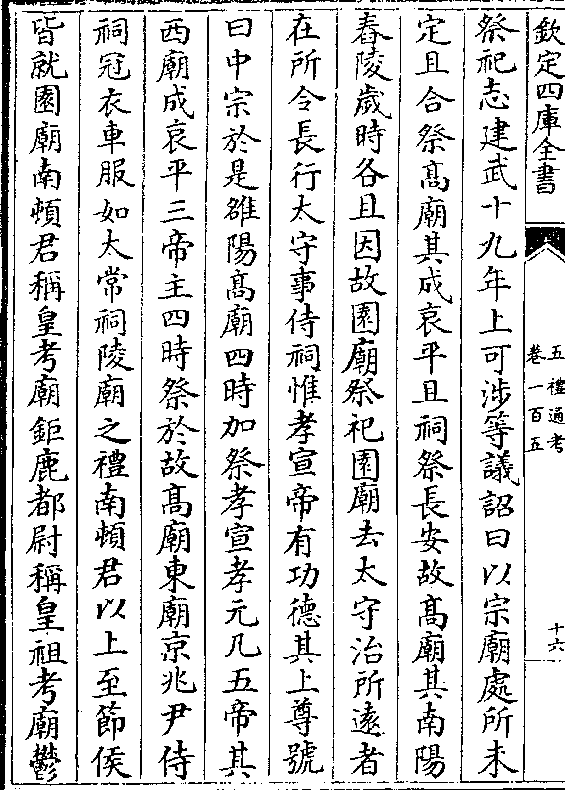 欽定四庫全書
五禮通考
卷一百五
十六
祭祀志建武十九年上可涉等議詔曰以宗廟處所未
定且合祭髙廟其成哀平且祠祭長安故髙廟其南陽
舂陵歲時各且因故園廟祭祀園廟去太守治所逺者
在所令長行太守事侍祠惟孝宣帝有功徳其上尊號
曰中宗於是雒陽髙廟四時加祭孝宣孝元凡五帝其
西廟成哀平三帝主四時祭於故髙廟東廟京兆尹侍
祠冠衣車服如太常祠陵廟之禮南頓君以上至節侯
皆就園廟南頓君稱皇考廟鉅鹿都尉稱皇祖考廟鬱